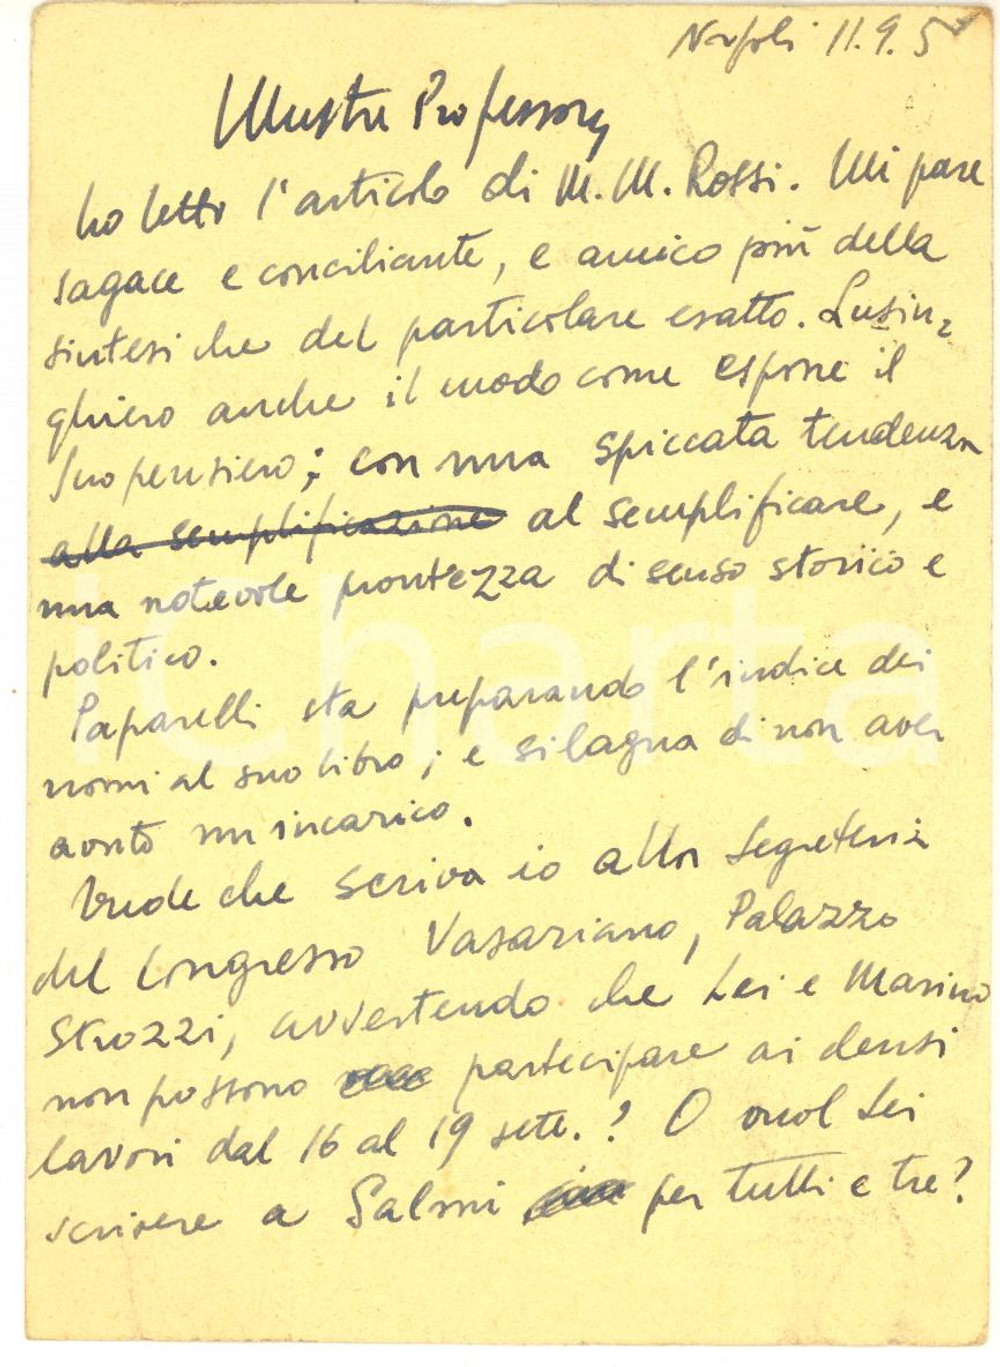 Napoli 11.9.5
Illustre Professore,
ho letto l'articolo di M. M. Rossi. Mi pare
sagace e conciliante, e amico più della
sintesi che del particolare esatto. Lusin=
ghiero anche il modo come espone il
Suo pensiero; con una spiccata tendenza
alla semplificazione al semplificare, e
una notevole prontezza di senso storico e
politico.
Paparelli sta preparando l'indice dei
nomi al suo libro; e si lagna di non aver
avuto un incarico.
Crede che scriva io alla Segreteria
del Congresso Vasariano, Palazzo
Strozzi, avvertendo che Lei e Marino
non possono partecipare ai densi
lavori dal 16 al 19 sett.? O vuol Lei
scrivere a Salmi per tutti e tre?
iCharta